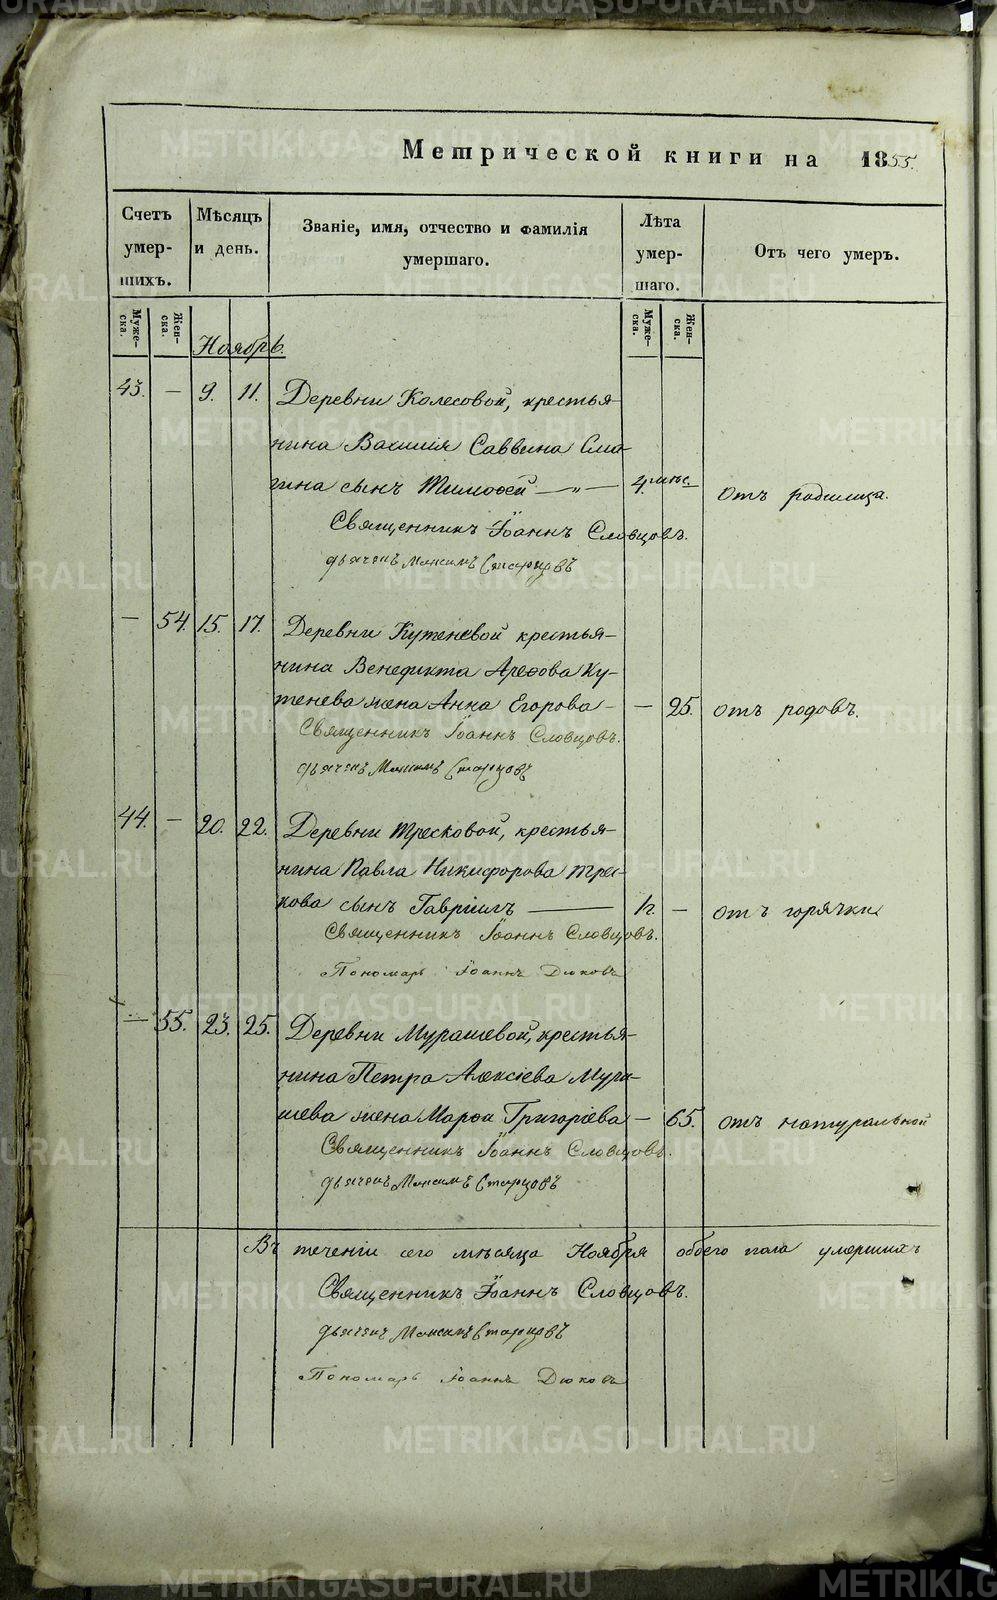 Метрической книги на 1855.
Счетъ умер- шихъ.
Мѣсяцъ и день.
Званіе, имя, отчество и фамилія умершаго.
Лѣта умер- шаго.
Отъ чего умеръ.
Муже- ска.
Жен- ска.
Муже- ска.
Жен- ска.
Ноябрь.
43. — 9. 11. Деревни Колесовой, крестья-
нина Василія Саввина Сма-
гина сынъ Тимофей — „ — 4. мѣс. отъ родимца.
Священникъ Іоаннъ Словцовъ.
дьячекъ Максимъ Старцовъ
— 54. 15. 17. Деревни Кутеневой крестья-
нина Венедикта Арефова Ку-
тенева жена Анна Егорова — — 25. отъ родовъ.
Священникъ Іоаннъ Словцовъ.
дьячекъ Максимъ Старцовъ
44. — 20. 22. Деревни Тресковой, крестья-
нина Павла Никифорова Трес-
кова сынъ Гавріилъ — — отъ горячки
Священникъ Іоаннъ Словцовъ.
Пономарь Іоаннъ Дюковъ
— 55. 23. 25. Деревни Мурашевой, крестья-
нина Петра Алексіева Мура-
шева жена Марфа Григоріева — 65. отъ натуральной
Священникъ Іоаннъ Словцовъ.
дьячекъ Максимъ Старцовъ
Въ теченіи сего мѣсяца Ноября обоего пола умершихъ
Священникъ Іоаннъ Словцовъ.
дьячекъ Максимъ Старцовъ
Пономарь Іоаннъ Дюковъ
METRIKI.GASO-URAL.RU